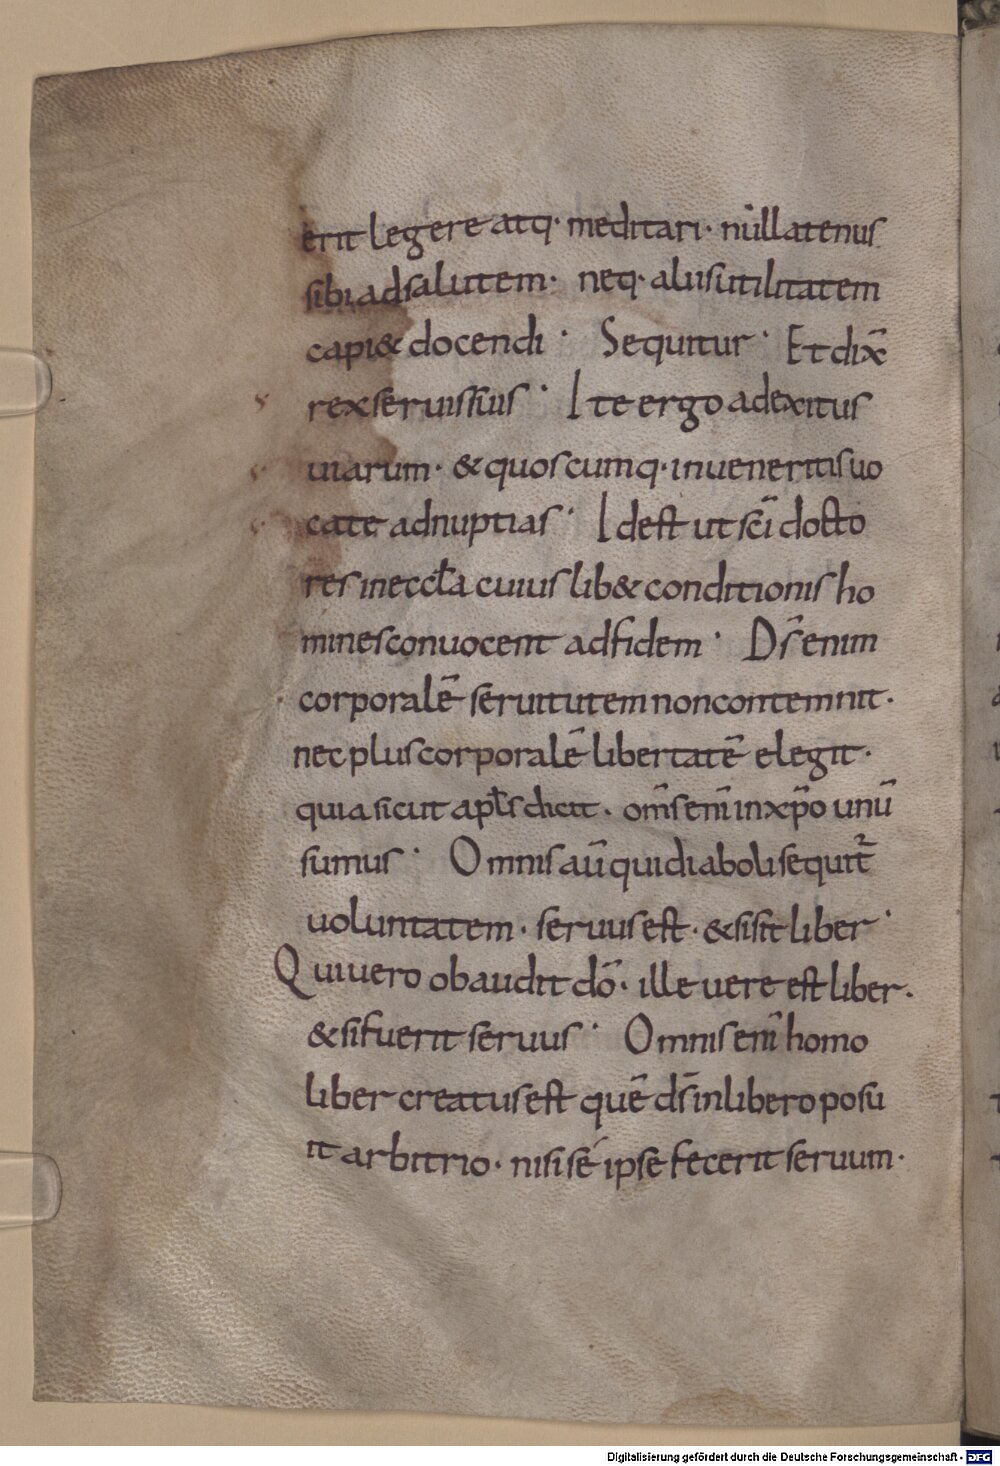 erit legere atq· meditari· nullatenus
sibi adsalutem· neq· aliisutilitatem
capi& docendi· Sequitur· Et dix̄
rex seruissuis· Ite ergo adexitus
uiarum· & quoscumq· inueneritis uo
cate adnuptias· Id est ut sc̄i docto
res ineccl̄a cuius lib& conditionis ho
mines conuocent adfidem· Ds̄ enim
corporalē seruitutem noncontemnit·
nec plus corporalē libertatē elegit·
quia sicut apl̄s dicit· om̄s eni̅ inxp̄o unū
sumus· Omnis aū qui diaboli sequit̄
uoluntatem· seruus est· & si sit liber·
Qui uero obaudit dō· ille uere est liber·
& si fuerit seruus· Omnis eni̅ homo
liber creatus est quē ds̄ inlibero posu
it arbitrio· nisi sé ipse fecerit seruum·
Digitalisierung gefördert durch die Deutsche Forschungsgemeinschaft - DFG